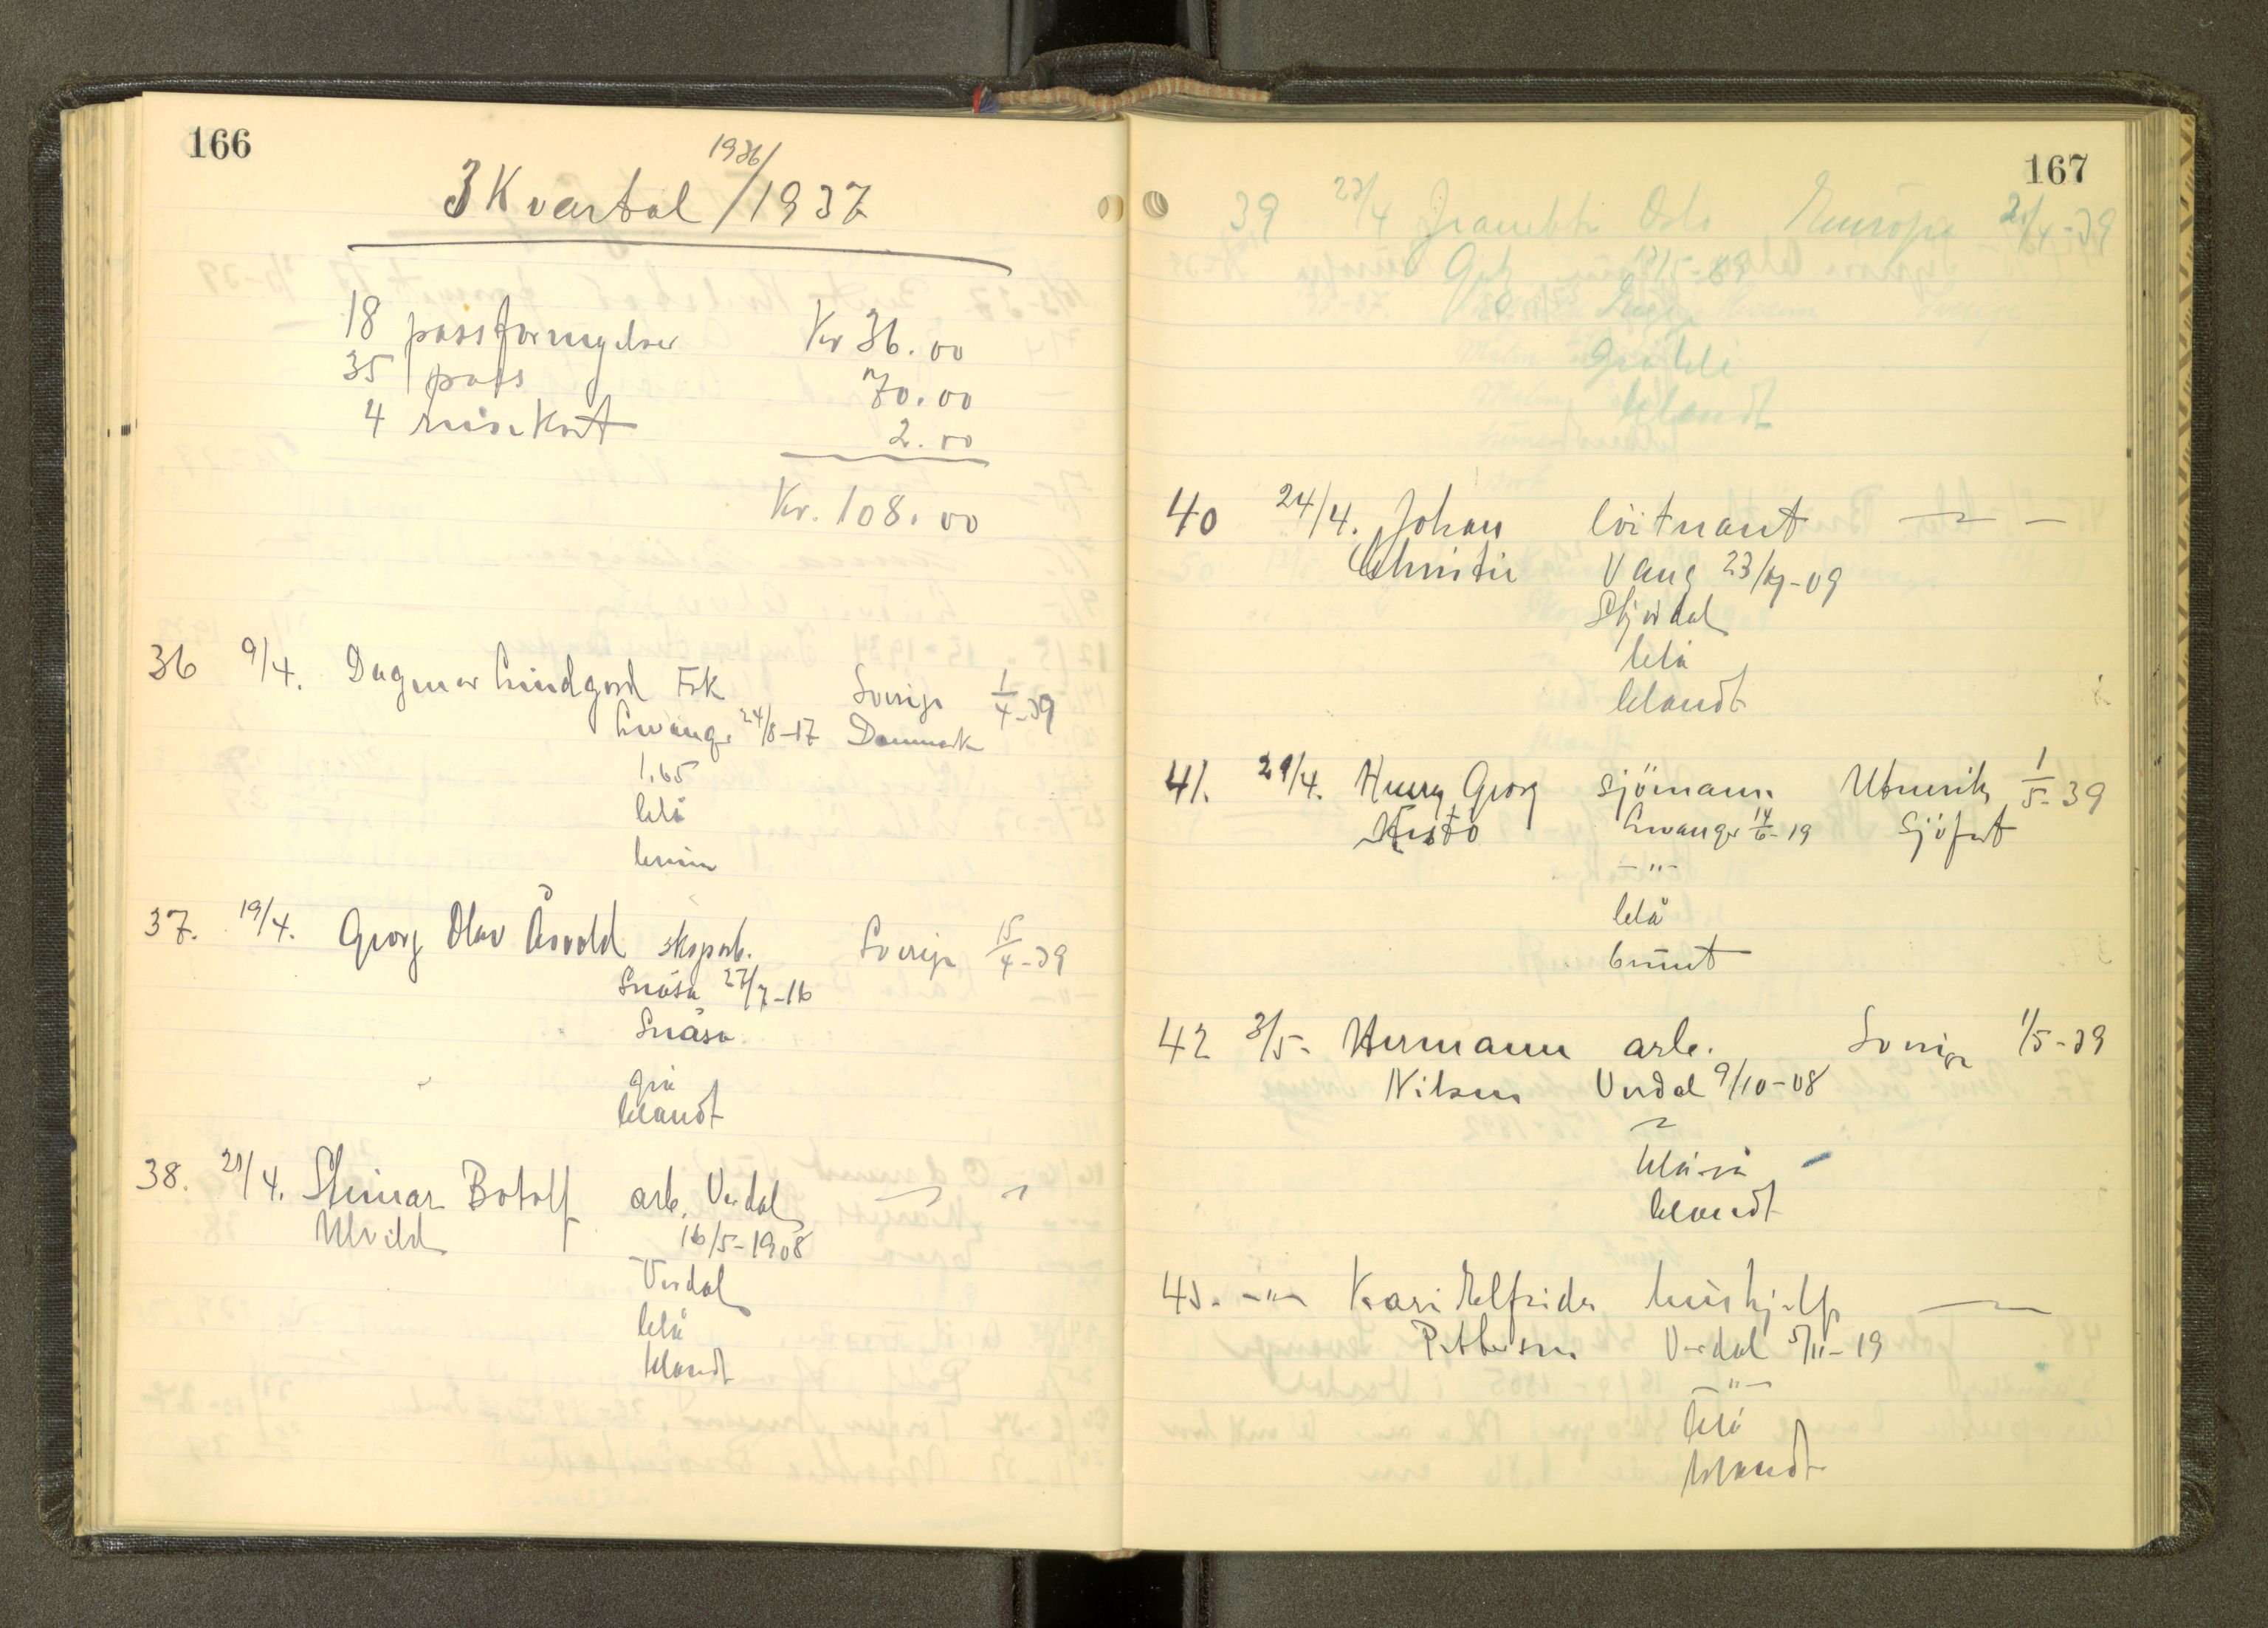 166
3 Kvartal 1936/1937
18 passfornyelser Kr 36.00
35 pass 70.00
4 reisekort 2.00
Kr. 108.00
36 9/4. Dagmar Lindgord Frk Sverige 1/4-39
Levanger 24/8-17 Danmark
1.65
blå
brun
37. 19/4. Georg Olav Åsvold skogarb. Sverige 15/4-39
Snåsa 27/7-16
Snåsa
grå
blandt
38. 21/4. Steinar Botolf arb. Verdal
Ulvild 16/5-1908
Verdal
blå
blandt
167
39 23/4 Oslo Europa 21/4-39
blandt
40 24/4. Johan löitnant
Christie Vang -09
Stjördal
blå
blandt
41. 29/4. Henry Georg sjömann Utenriks 1/5-39
Levanger 14/6-19 Sjöfart
-"-
blå
brunt
42 3/5- Hermann arb. Sverige 1/5-39
Nilsen Verdal 9/10-08
blandt
43. -"- Kari Elfrida hushjelp
Pettersen Verdal 5/11-19
-"-
blå
blandt